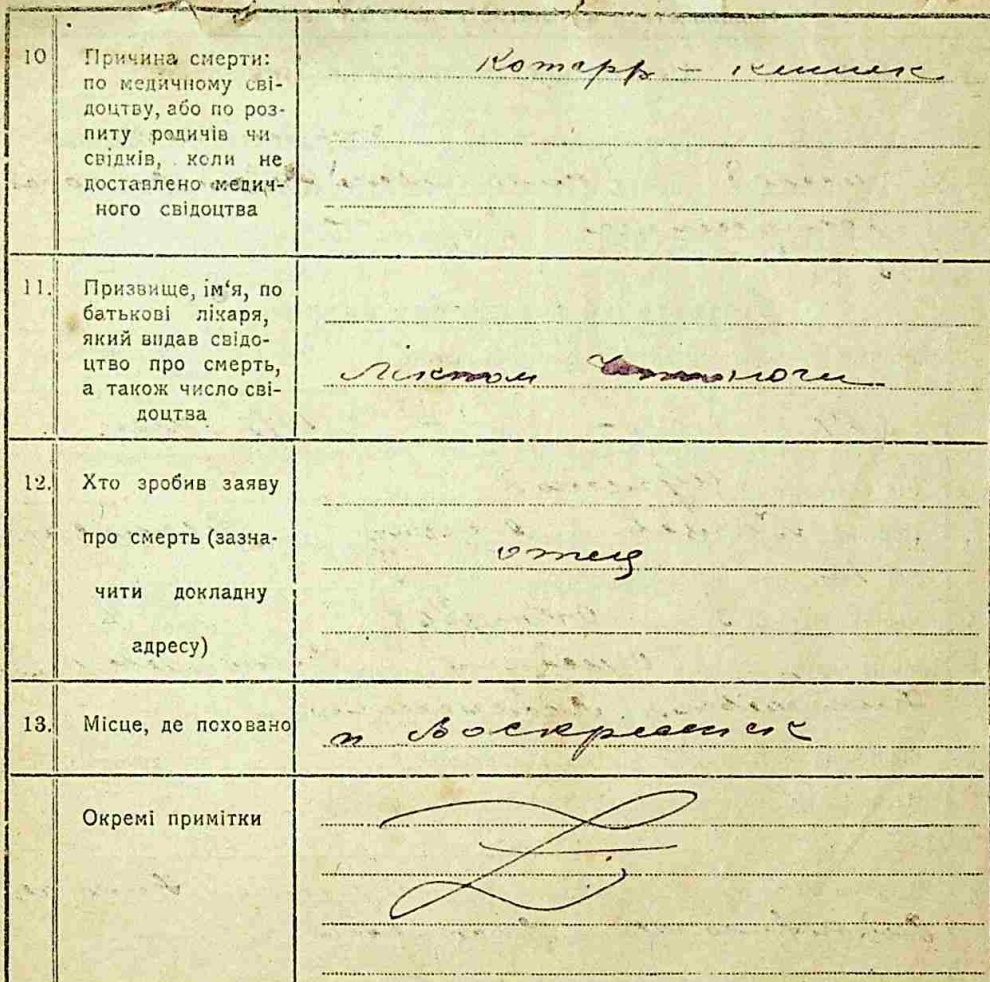 10 Причина смерти:
по медичному сві-
доцтву, або по роз-
питу родичів чи
свідків, коли не
доставлено медич-
ного свідоцтва
Котарр - кишек
11. Призвище, ім'я, по
батькові лікаря,
який видав свідо-
цтво про смерть,
а також число сві-
доцтва
12. Хто зробив заяву
про смерть (зазна-
чити докладну
адресу)
отец
13. Місце, де поховано
п Воскресенск
Окремі примітки